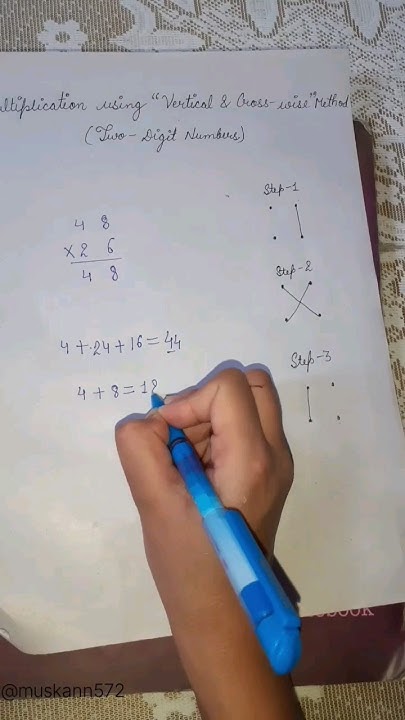 ltiplication using "Vertical & Cross-wise" Method
(Two-Digit Numbers)
Step-1
4 8
×2 6
4 8
Step-2
4 + 24 + 16 = 44
Step-3
4 + 8 = 12
@muskann572